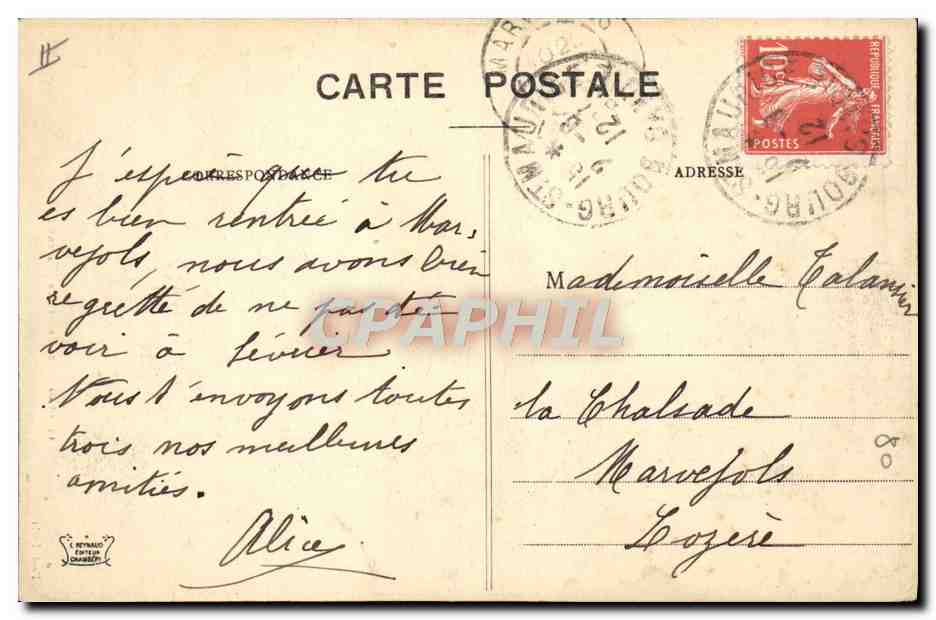 CARTE POSTALE
CORRESPONDANCE
J'espère que tu
es bien rentrée à Mar,
vejols, nous avons bien
regretté de ne pas te
voir à Sévrier
Nous t'envoyons toutes
trois nos meilleures
amitiés.
Alice
C. REYNAUD
ÉDITEUR
CHAMBÉRY
10c
REPUBLIQUE FRANÇAISE
POSTES
ADRESSE
Mademoiselle Talansier
la Chalsade
Marvejols
Lozère
CPAPHIL